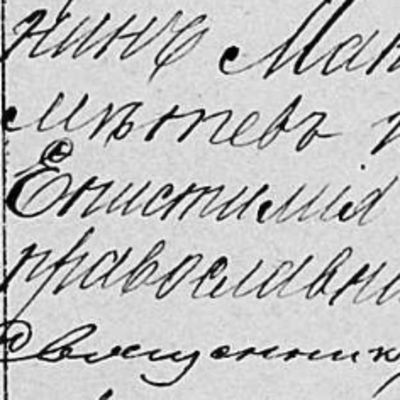 нинъ Мак
мѣтевъ
Епистимія
православн
Священник